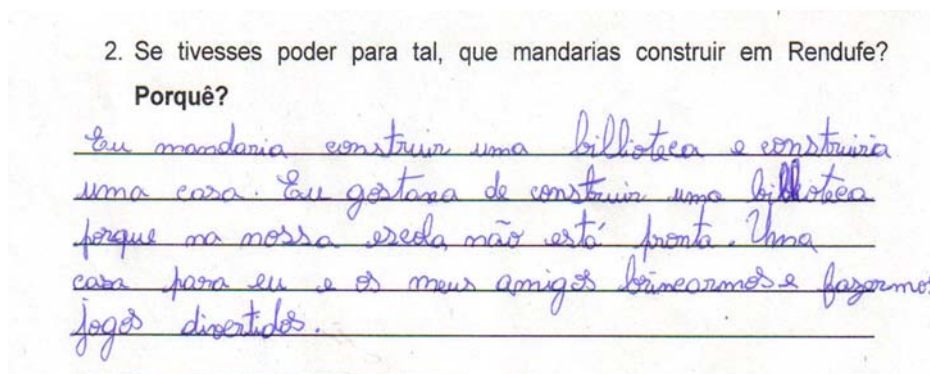 2. Se tivesses poder para tal, que mandarias construir em Rendufe?
Porquê?
Eu mandaria construir uma biblioteca e construiria
uma casa. Eu gostaria de construir uma biblioteca
porque na nossa escola não está pronta. Uma
casa para eu e os meus amigos brincarmos e fazermos
jogos divertidos.